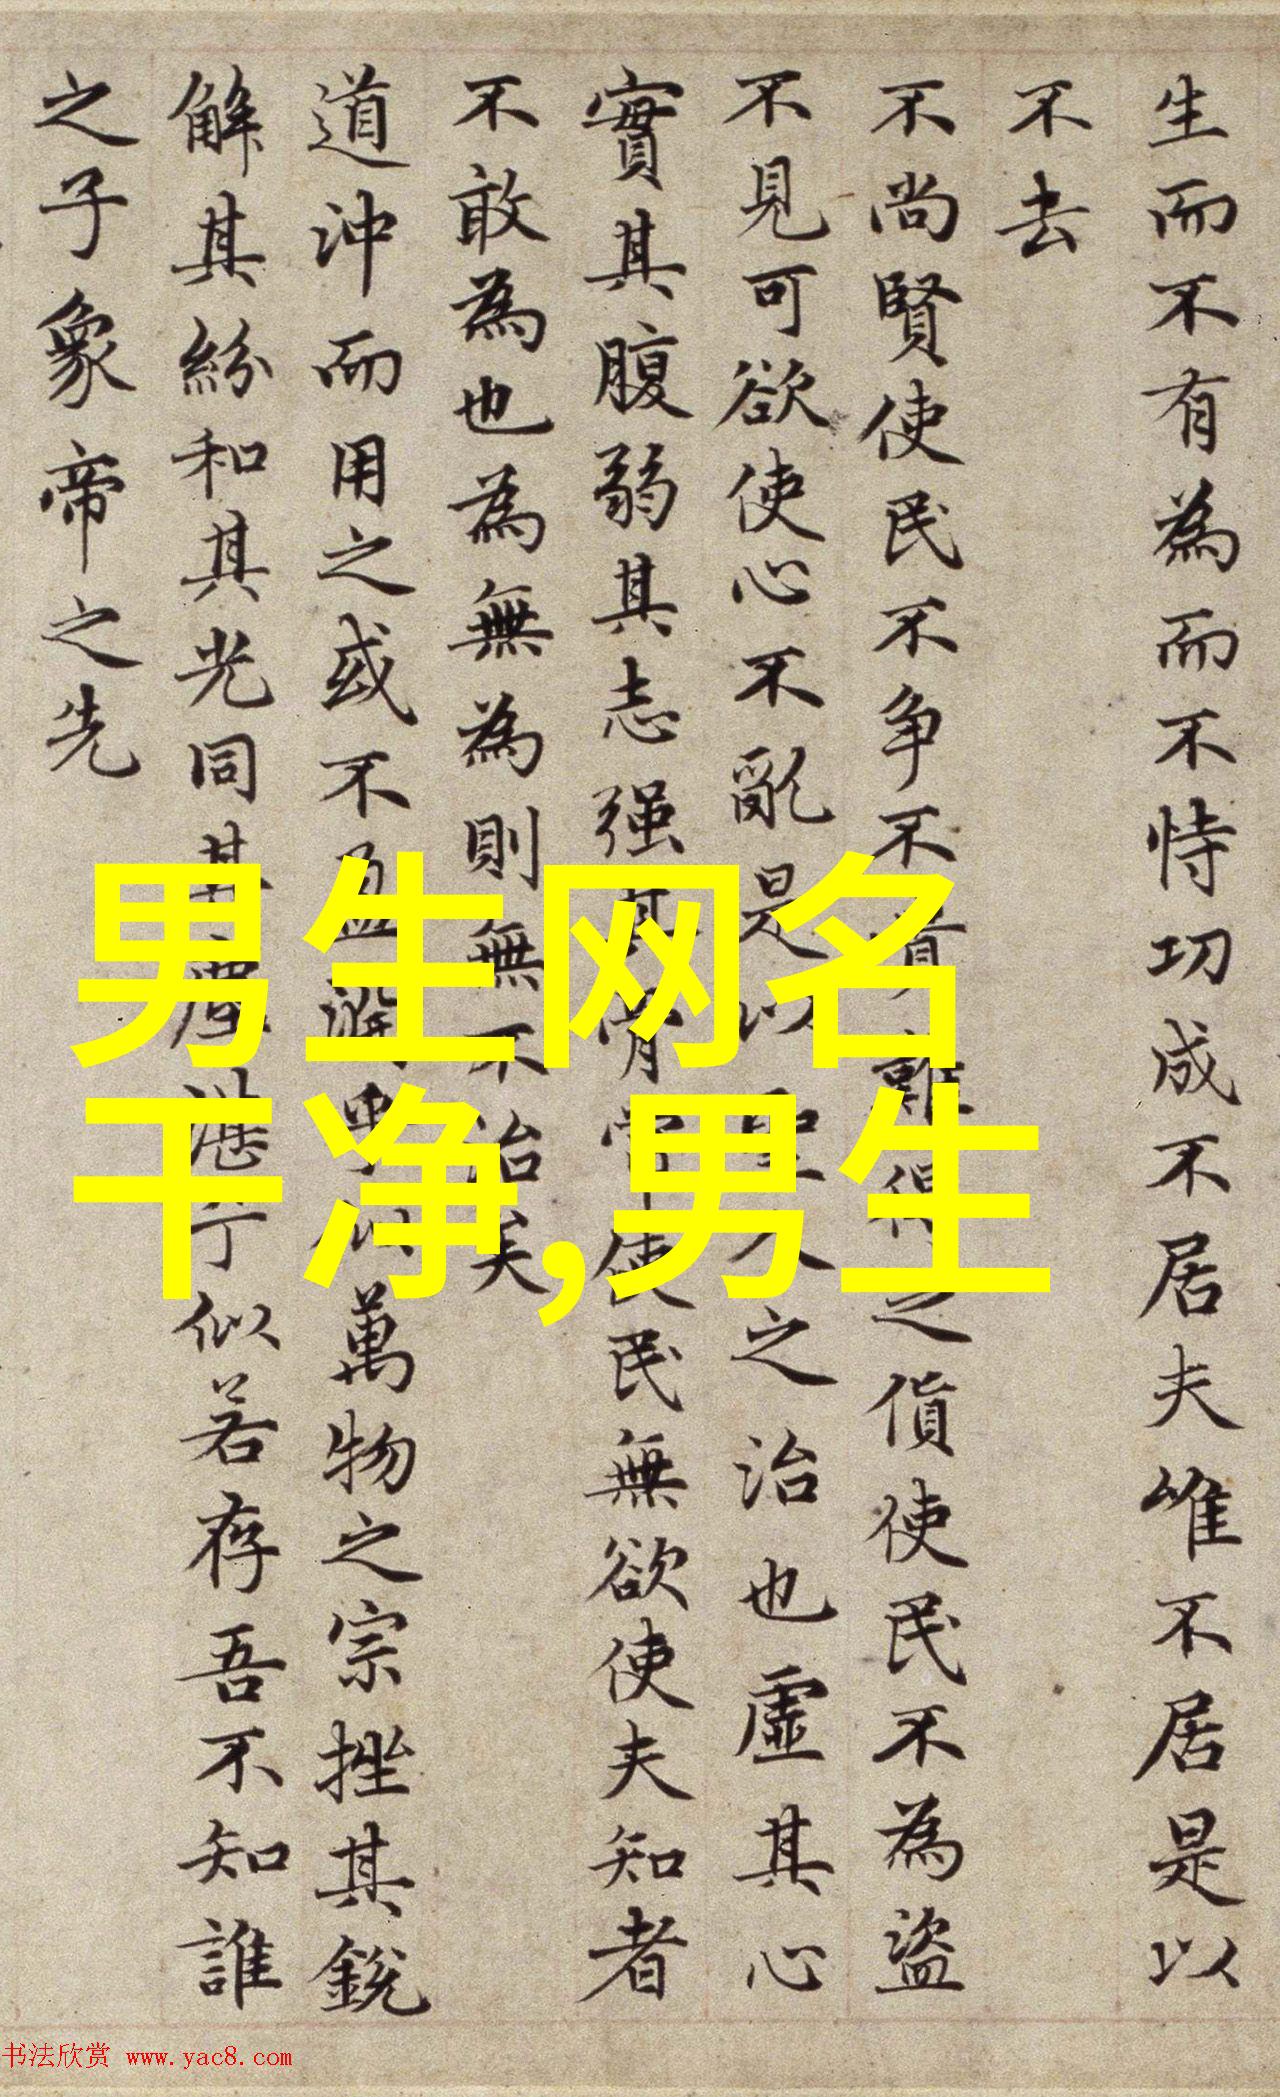 生而不有為而不恃功成不居夫唯不居是以
不去
不尚賢使民不争不貴難得之貨使民不為盜
不見可欲使心不亂是以聖人之治也虛其心
實其腹弱其志强其骨常使民無欲使夫知者
不敢為也為無為則無不治矣
道沖而用之或不盈淵乎似萬物之宗挫其銳
解其紛和其光同其塵湛兮似若存吾不知誰
之子象帝之先
男生网名
干净,男生
书法欣赏 www.yac8.com